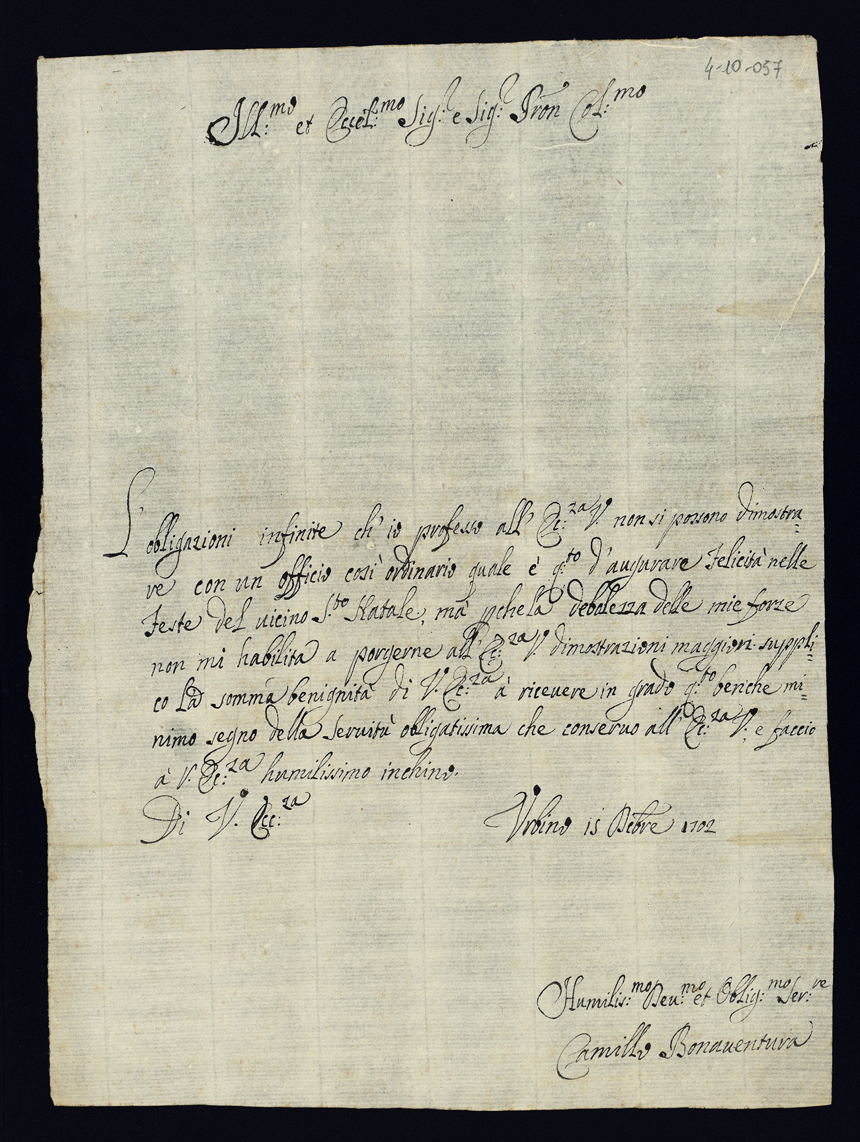 4-10-057
Ill:mo et Eccel:mo Sig:r e Sig:r Pron Col:mo
L'obligazioni infinite ch'io professo all'Ec:za V. non si possono dimostra=
re con un officio così ordinario quale è q:to d'augurare felicità nelle
feste del vicino S:to Natale, ma pche la debolezza delle mie forze
non mi habilita a porgerne all'Ec:za V. dimostrazioni maggiori suppli=
co la somma benignità di V. Ec:za à ricevere in grado q:to benche mi=
nimo segno della servitù obligatissima che conservo all'Ec:za V., e faccio
à V. Ec:za humilissimo inchino.
Di V. Ecc:za Urbino 15 Xbre 1702
Humilis:mo Deu:mo et Oblig:mo Ser:re
Camillo Bonaventura